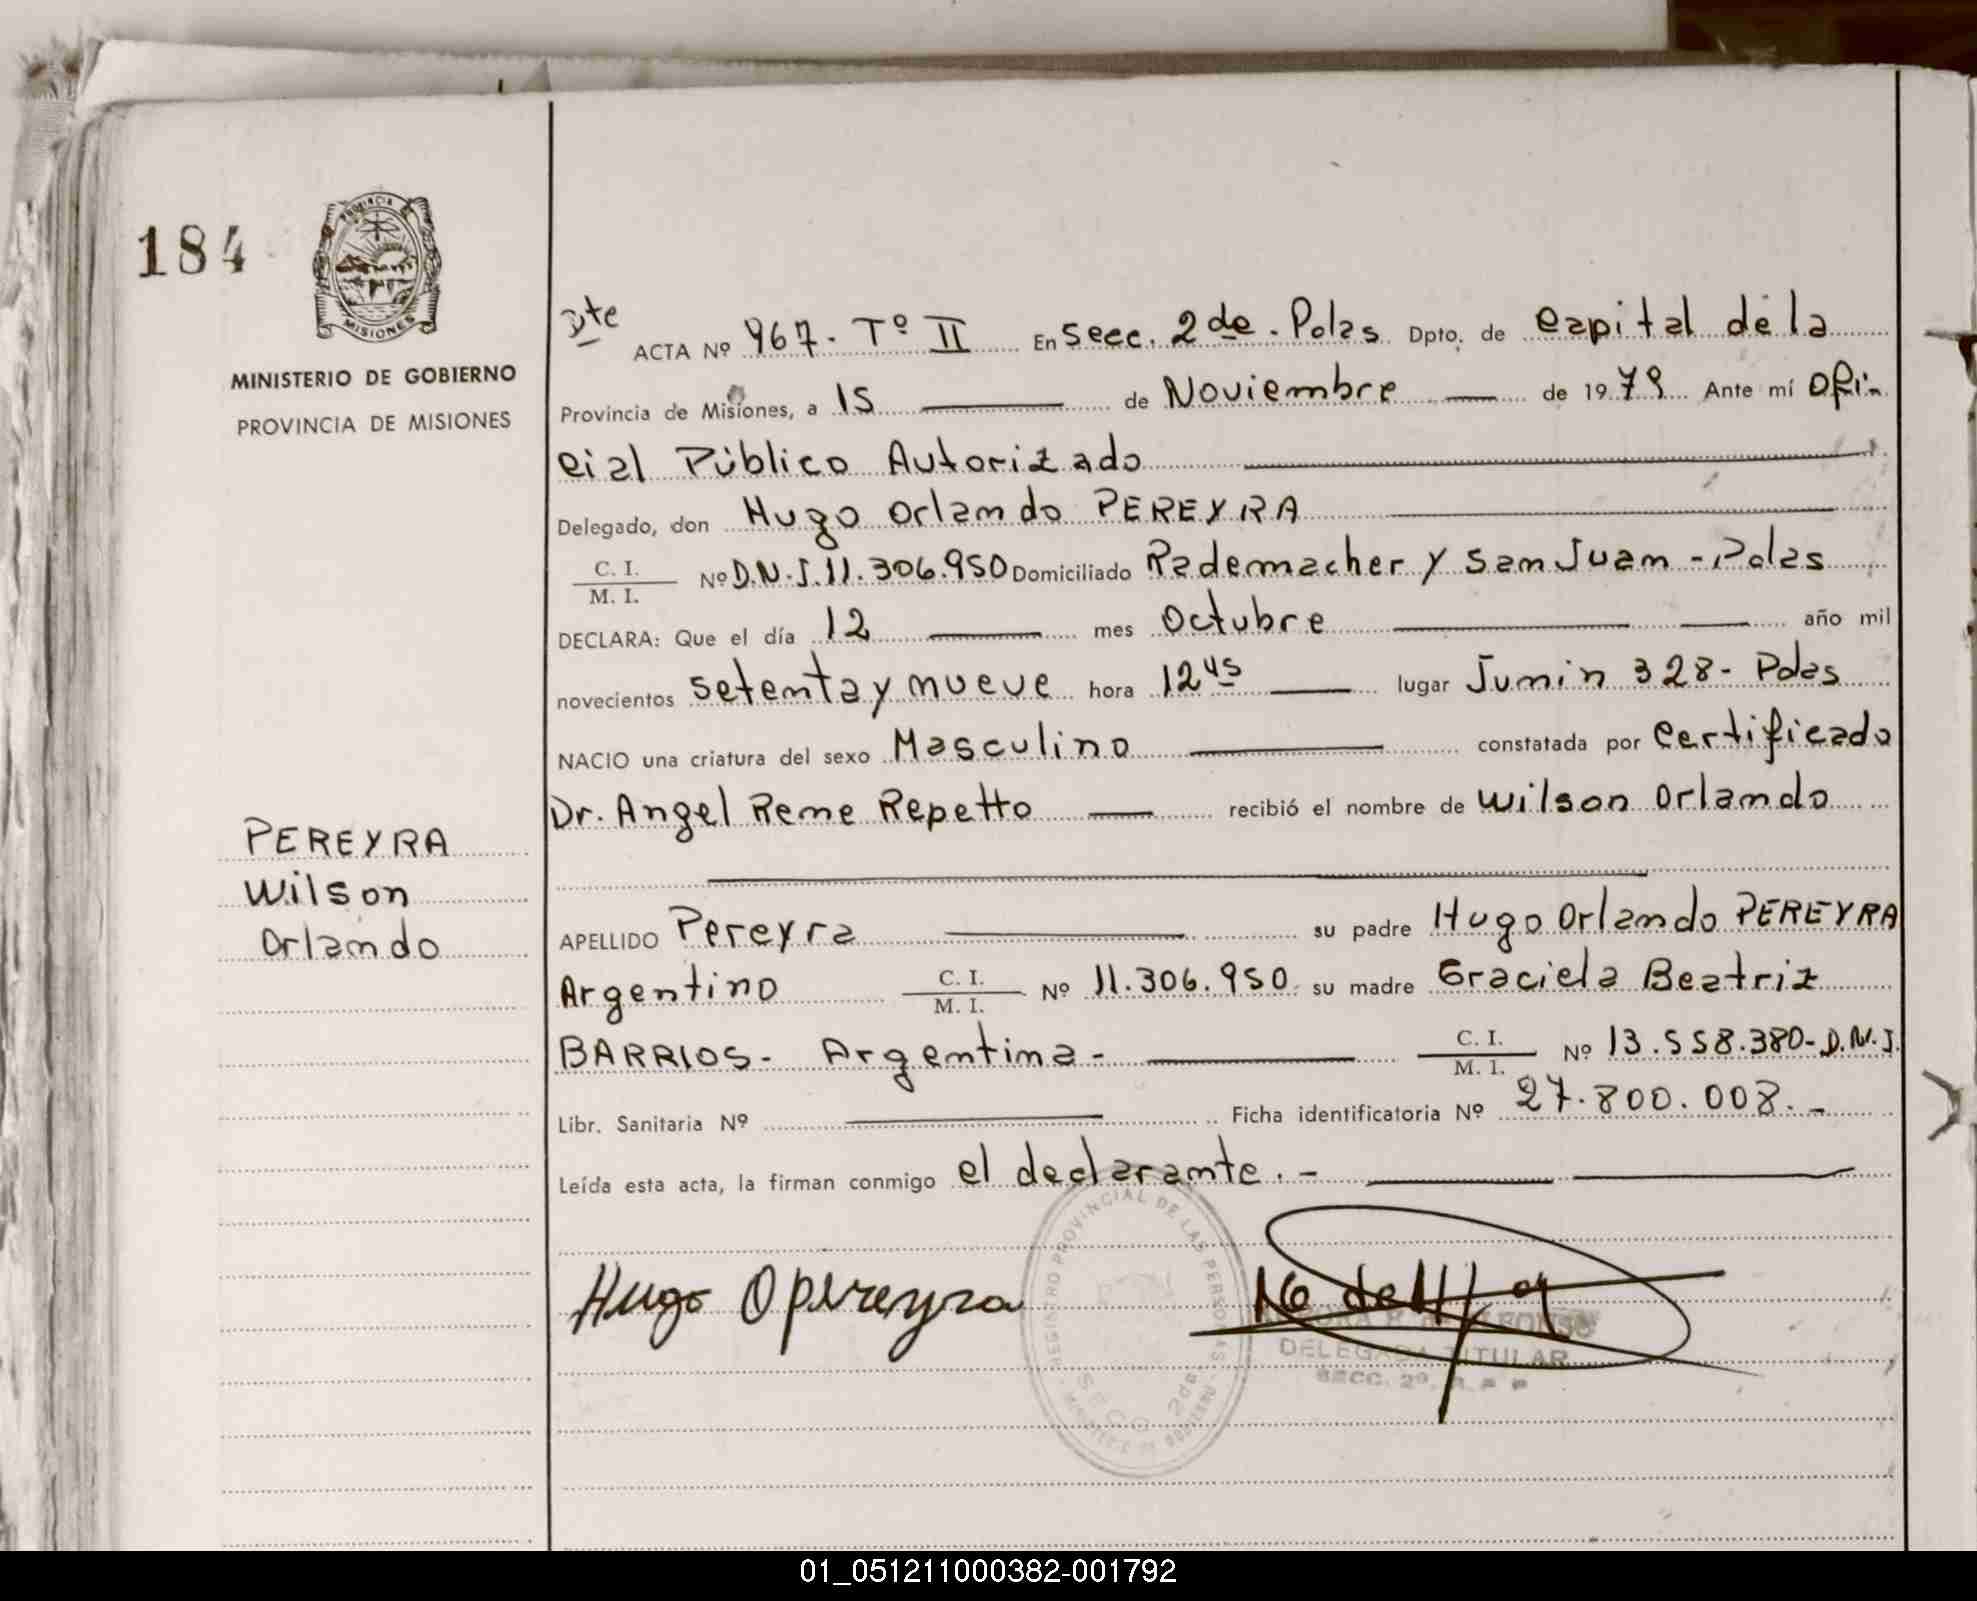 184
PROVINCIA
MISIONES
MINISTERIO DE GOBIERNO
PROVINCIA DE MISIONES
PEREYRA
Wilson
Orlando
Dte
ACTA Nº 967. Tº II En Secc. 2da. Pdas. Dpto. de Capital de la
Provincia de Misiones, a 15 de Noviembre de 1979 Ante mí Ofi-
cial Público Autorizado
Delegado, don Hugo Orlando PEREYRA
C. I.
M. I.
Nº D.N.I. 11.306.950 Domiciliado Rademacher y San Juan - Pdas
DECLARA: Que el día 12 mes Octubre año mil
novecientos setenta y nueve hora 12 45 lugar Junin 328 - Pdas
NACIO una criatura del sexo Masculino constatada por Certificado
Dr. Angel Rene Repetto recibió el nombre de Wilson Orlando
APELLIDO Pereyra su padre Hugo Orlando PEREYRA
Argentino C. I. M. I. Nº 11.306.950 su madre Graciela Beatriz
BARRIOS - Argentina - C. I. M. I. Nº 13.558.380 - D.N.I.
Libr. Sanitaria Nº Ficha identificatoria Nº 27.800.008. -
Leída esta acta, la firman conmigo el declarante. -
Hugo O Pereyra
REGISTRO PROVINCIAL DE LAS PERSONAS
SECC 2da.
DELEGADA TITULAR
SECC. 2º.
01_051211000382-001792